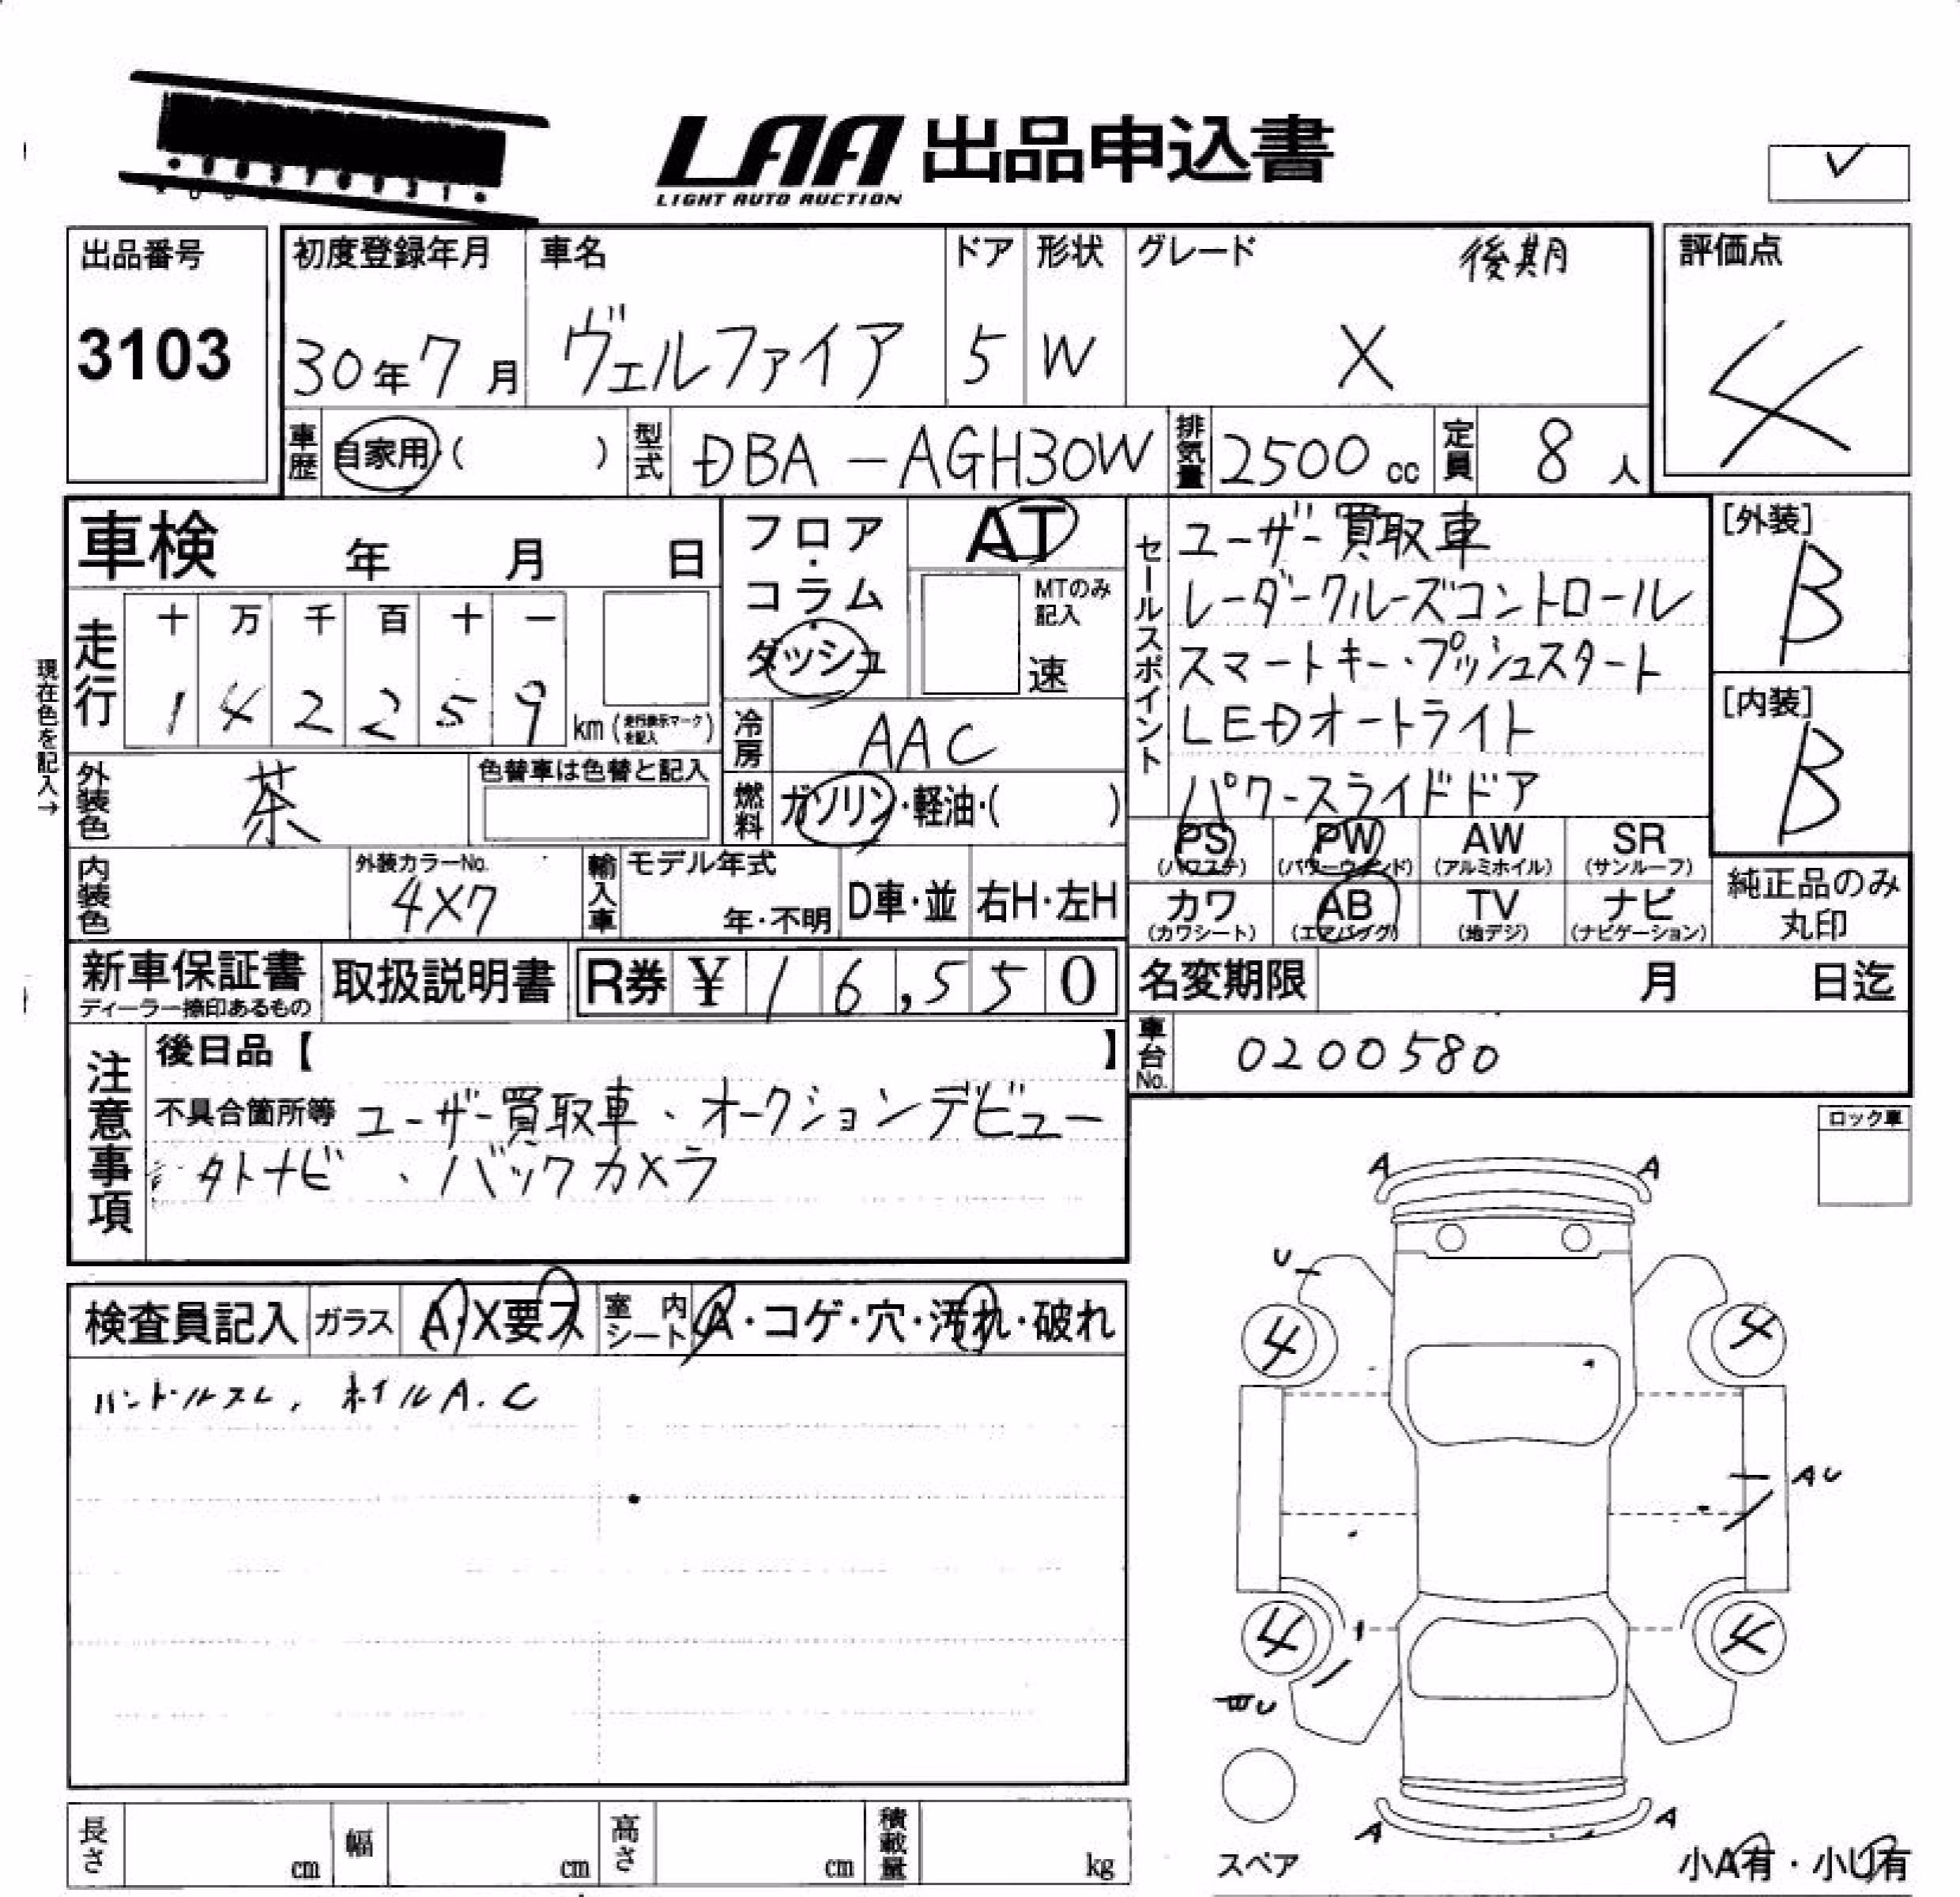 LAA 出品申込書
LIGHT AUTO AUCTION
出品番号
3103
初度登録年月
30年7月
車名
ヴェルファイア
ドア
5
形状
W
グレード 後期
X
評価点
4
車歴 自家用・( )
型式 DBA-AGH30W
排気量 2500cc
定員 8人
車検 年 月 日
フロア・コラム・ダッシュ
AT
MTのみ記入
速
現在色を記入→
走行
十 万 千 百 十 一
1 4 2 2 5 9 km (走行表示マークを記入)
冷房 AAC
外装色 茶
色替車は色替と記入
燃料 ガソリン・軽油・( )
内装色
外装カラーNo.
4X7
輸入車
モデル年式
年・不明
D車・並
右H・左H
セールスポイント
ユーザー買取車
レーダークルーズコントロール
スマートキー・プッシュスタート
LEDオートライト
パワースライドドア
[外装]
B
[内装]
B
PS (パワステ)
PW (パワーウィンド)
AW (アルミホイル)
SR (サンルーフ)
カワ (カワシート)
AB (エアバッグ)
TV (地デジ)
ナビ (ナビゲーション)
純正品のみ
丸印
新車保証書
ディーラー捺印あるもの
取扱説明書
R券 ¥16,550
名変期限 月 日迄
車台No. 0200580
注意事項
後日品【 】
不具合箇所等 ユーザー買取車、オークションデビュー
外ナビ、バックカメラ
ロック車
検査員記入
ガラス A・X要ス
室内シート A・コゲ・穴・汚れ・破れ
ハンドルスレ、ホイルA.C
A A
U
4 4
AU
4 4
U
A A
スペア
小A有・小U有
長さ cm
幅 cm
高さ cm
積載量 kg